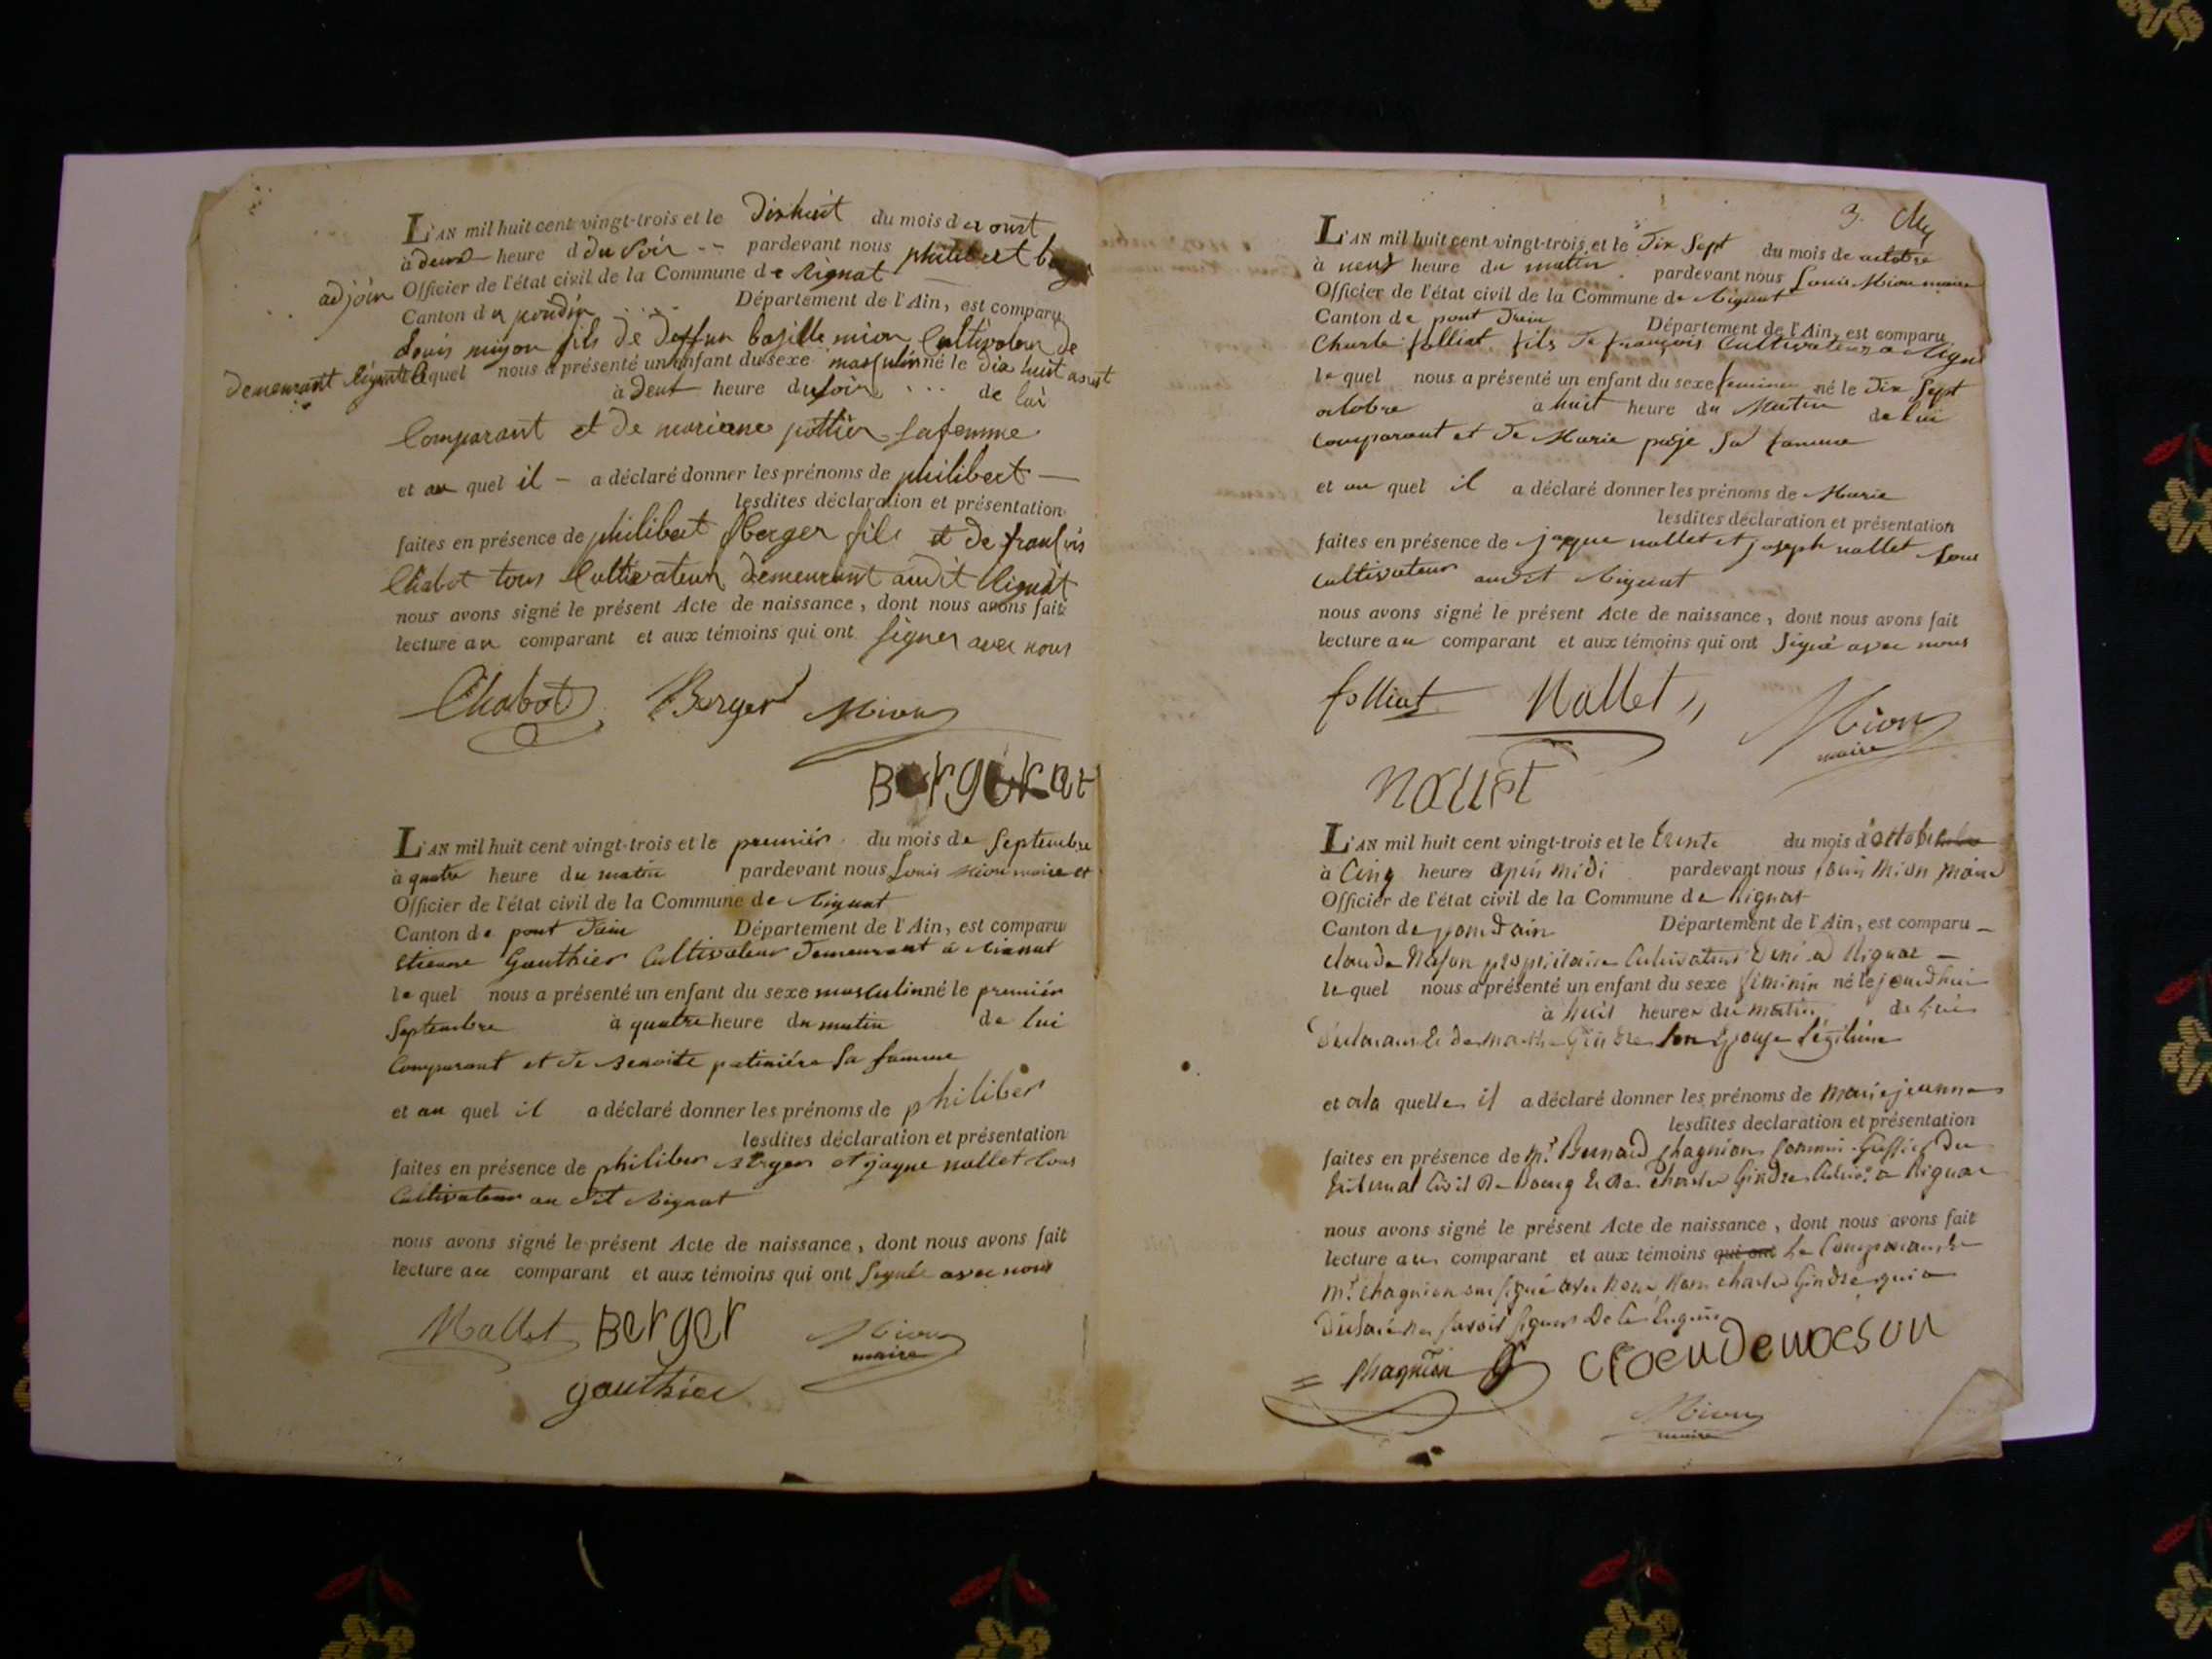 L'AN mil huit cent vingt-trois et le Dixhuit du mois d aoust
à deux heure d du soir -- pardevant nous philibert
adjoin Officier de l'état civil de la Commune de Rignat
Canton du pondin .... Département de l'Ain, est comparu
Louis miyon fils de deffun basille mion Cultivateur de
demeurant Rignat lequel nous a présenté un enfant du sexe masculin né le dix huit aoust
à deux heure du soir ... de lui
Comparant et de mariane pottier sa femme
et au quel il — a déclaré donner les prénoms de philibert —
lesdites déclaration et présentation
faites en présence de philibert Berger fils et de franssois
Chabot tous Cultivateur demeurant audit Rignat
nous avons signé le présent Acte de naissance, dont nous avons fait
lecture au comparant et aux témoins qui ont signer avec nous
Chabot Berger Mion
Bergerat
L'AN mil huit cent vingt-trois et le premier du mois de Septembre
à quatre heure du matin pardevant nous Louis Mion maire et
Officier de l'état civil de la Commune de Rignat
Canton de pont Dain Département de l'Ain, est comparu
Etienne Gauthier Cultivateur Demeurant a Rignat
le quel nous a présenté un enfant du sexe masculin né le premier
Septembre à quatre heure du matin de lui
Comparant et de Benoite patiniére sa famme
et au quel il a déclaré donner les prénoms de philiber
lesdites déclaration et présentation
faites en présence de philiber Berger et jaque nallet tous
Cultivateur au dit Rignat
nous avons signé le présent Acte de naissance, dont nous avons fait
lecture au comparant et aux témoins qui ont Signée avec nous
Nallet Berger Mion
maire
gauthier
3.
L'AN mil huit cent vingt-trois et le Dix Sept du mois de octobre
à neuf heure du matin pardevant nous Louis Mion maire
Officier de l'état civil de la Commune de Rignat
Canton de pont Dain Département de l'Ain, est comparu
Charle folliat fils de françois Cultivateur a Rignat
le quel nous a présenté un enfant du sexe feminin né le Dix Sept
octobre à huit heure du Matin de lui
Comparant et de Marie paje sa famme
et au quel il a déclaré donner les prénoms de Marie
lesdites déclaration et présentation
faites en présence de jaque nallet et joseph nallet tous
Cultivateur audit Rignat
nous avons signé le présent Acte de naissance, dont nous avons fait
lecture au comparant et aux témoins qui ont Signé avec nous
folliat Nallet Mion
maire
nallet
L'AN mil huit cent vingt-trois et le trente du mois d'octobre
à Cinq heures apres midi pardevant nous Louis Mion Maire
Officier de l'état civil de la Commune de Rignat
Canton de pondain Département de l'Ain, est comparu —
claude Nason propriétaire Cultivateur a Rignat —
le quel nous a présenté un enfant du sexe féminin né le jourdhui
à huit heures du matin de lui
Déclarant & de Gindre son Epouse légitime
et a la quelle il a déclaré donner les prénoms de Marie jeanne
lesdites declaration et présentation
faites en présence de Mr. Bernard Chagnion Commis Greffier du
tribunal Civil de Bourg & de Charles Gindre Cultivr. a Rignat
nous avons signé le présent Acte de naissance, dont nous avons fait
lecture au comparant et aux témoins qui ont Le Comparant &
Mr. Chagnion ont signé avec nous, Non charles Gindre qui a
Déclaré ne savoir signer De ce Enquis
= Chagnion
Mion
maire